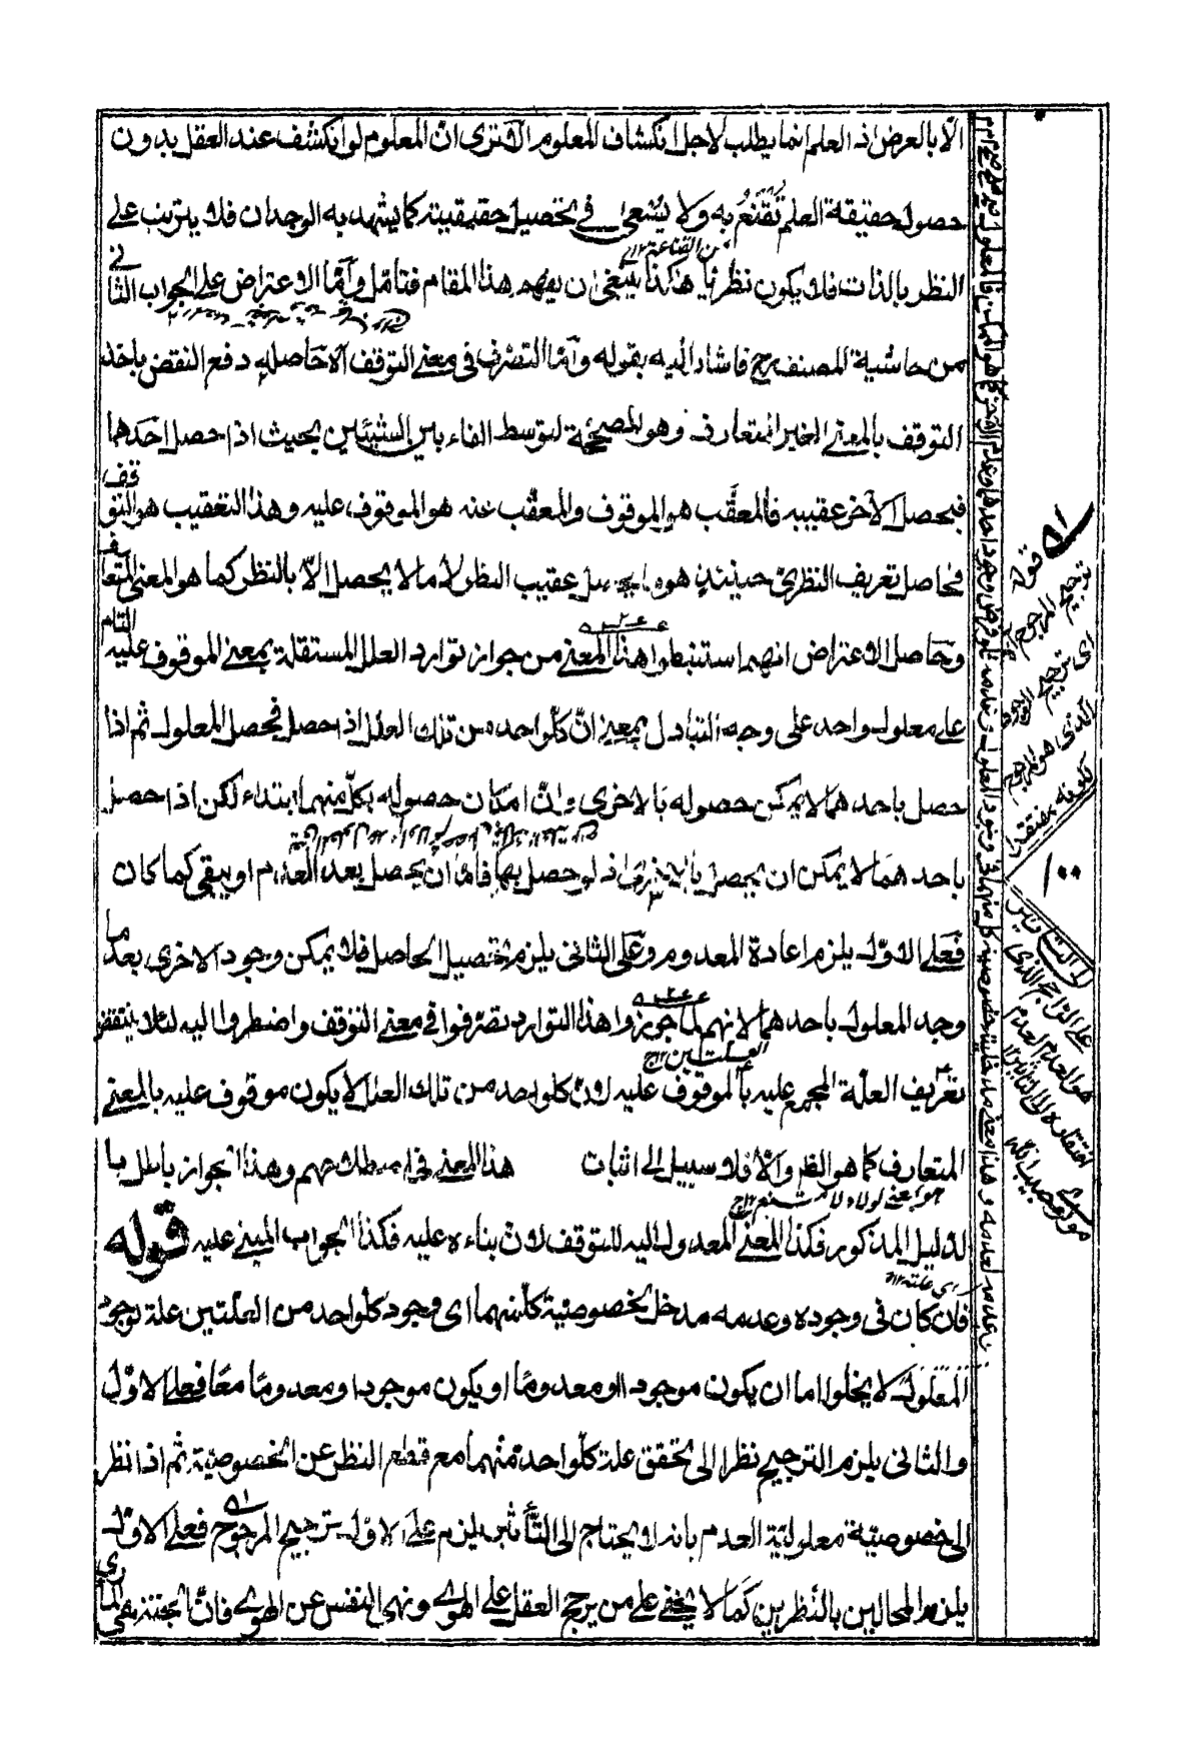 الّا بالعرض اذ العلم انما يطلب لاجل انكشاف المعلوم الا ترى انّ المعلوم لو انكشف عند العقل بدون
حصول حقيقة العلم تقنع به ولا يسعى في تحصيل حقيقته كما يشهد به الوجدان فلا يترتب على
من القناعة ١٢
النظر بالذات فلا يكون نظريا هكذا ينبغي ان يفهم هذا المقام فتأمّل وأمّا الاعتراض على الجواب الثاني
من حاشية المصنف رح فاشار اليه بقوله وأمّا التصرف في معنى التوقف الخ حاصله دفع النقض باخذ
التوقف بالمعنى الغير المتعارف وهو المصححة لتوسط الفاء بين الشيئين بحيث اذا حصل احدهما
فيحصل الآخر عقيبه فالمعقّب هو الموقوف والمعقّب عنه هو الموقوف عليه وهذا التعقيب هو التوقف
فحاصل تعريف النظريّ حينئذٍ هو ما يحصل عقيب النظر لا ما لا يحصل الّا بالنظر كما هو المعنى المتعارف
وحاصل الاعتراض انهم استنبطوا هذا المعنى من جواز توارد العلل المستقلة بمعنى الموقوف عليه التام
على معلول واحد على وجه التبادل بمعنى انّ كلّ واحد من تلك العلل اذا حصل فيحصل المعلول ثم اذا
حصل باحدهما لا يمكن حصوله بالاخرى وانّ امكان حصوله بكلّ منهما ابتداء لكن اذا حصل
باحدهما لا يمكن ان يحصل بالاخرى اذ لو حصل بها فامّا ان يحصل بعد العدم او يبقى كما كان
فعلى الاوّل يلزم اعادة المعدوم وعلى الثاني يلزم تحصيل الحاصل فلا يمكن وجود الاخرى بعد ما
وجد المعلول باحدهما لانهم لمّا جوّزوا هذا التوارد تصرفوا في معنى التوقف واضطروا اليه لئلا ينتقض
العلتين ١٢
تعريف العلّة المجمع عليه بالموقوف عليه لانّ كل واحد من تلك العلل لا يكون موقوف عليه بالمعنى
المتعارف كما هو الظاهر والّا فلا سبيل الى اثبات هذا المعنى في اصطلاحهم وهذا الجواز باطل با
هو اعني لولاه لامتنع ١٢
لدليل المذكور فكذا المعنى المعدول اليه للتوقف لانّ بناءه عليه فكذا الجواب المبني عليه قوله
اى علته ١٢
فان كان في وجوده وعدمه مدخل لخصوصية كلّ منهما اى وجود كل واحد من العلّتين علة لوجود
المعلول لا يخلوا اما ان يكون موجودا او معدومًا او يكون موجودا ومعدومًا معًا فعلى الاوّل
والثاني يلزم الترجيح نظرا الى تحقق علة كلّ واحد منهما مع قطع النظر عن الخصوصيّة ثم اذا نظر
الى خصوصيّة معلوليّة العدم بانه لا يحتاج الى التأثير يلزم على الاوّل ترجيح المرجوح فعلى الاوّل
يلزم المحالين بالنظرين كما لا يخفى على من يرجح العقل على الهوى ونهى النفس عن الهوى فانّ الجنة هي المأوى
٥١ قوله
ترجيح المرجوح
اى ترجيح الوجود
الذى هو المرجوح
لكونه مفتقرا
١٠٠
الى التاثير
على الراجح الذى
هو العدم لعدم
افتقاره الى التاثير ١٢